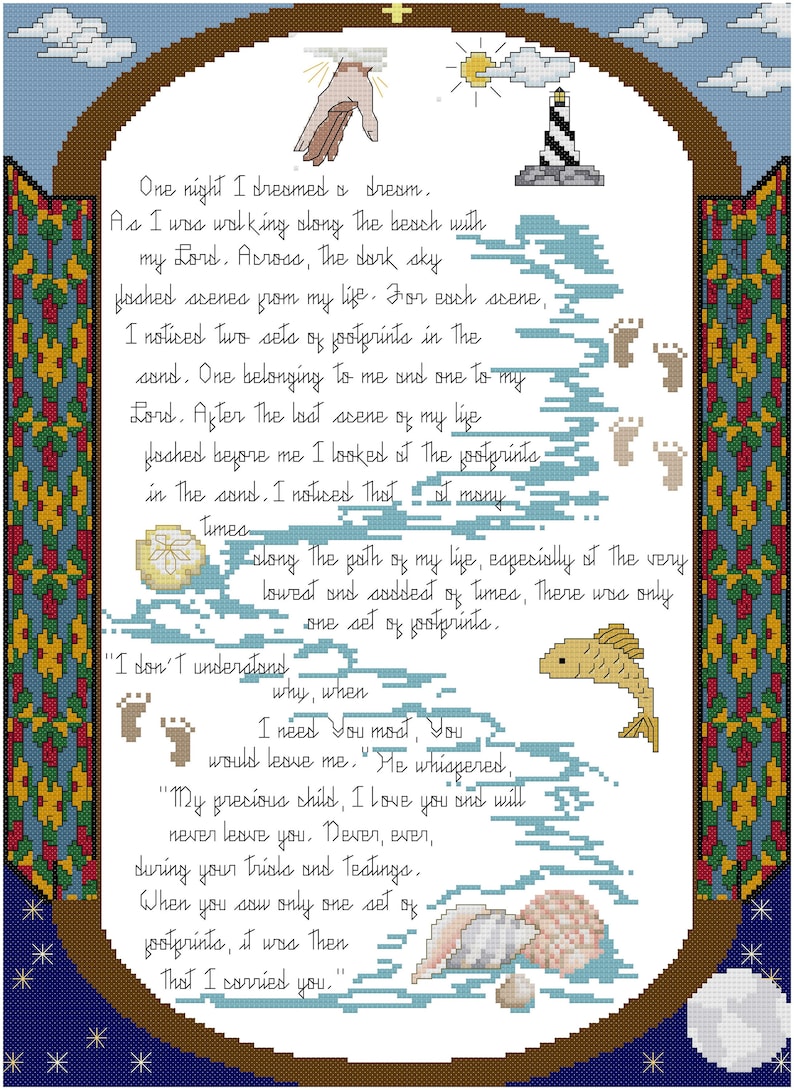 One night I dreamed a dream.
As I was walking along the beach with
my Lord. Across, the dark sky
flashed scenes from my life. For each scene,
I noticed two sets of footprints in the
sand. One belonging to me and one to my
Lord. After the last scene of my life
flashed before me I looked at the footprints
in the sand. I noticed that at many
times
along the path of my life, especially at the very
lowest and saddest of times, there was only
one set of footprints.
"I don't understand
why, when
I need You most, You
would leave me." He whispered,
"My precious child, I love you and will
never leave you. Never, ever,
during your trials and testings.
When you saw only one set of
footprints, it was then
that I carried you."